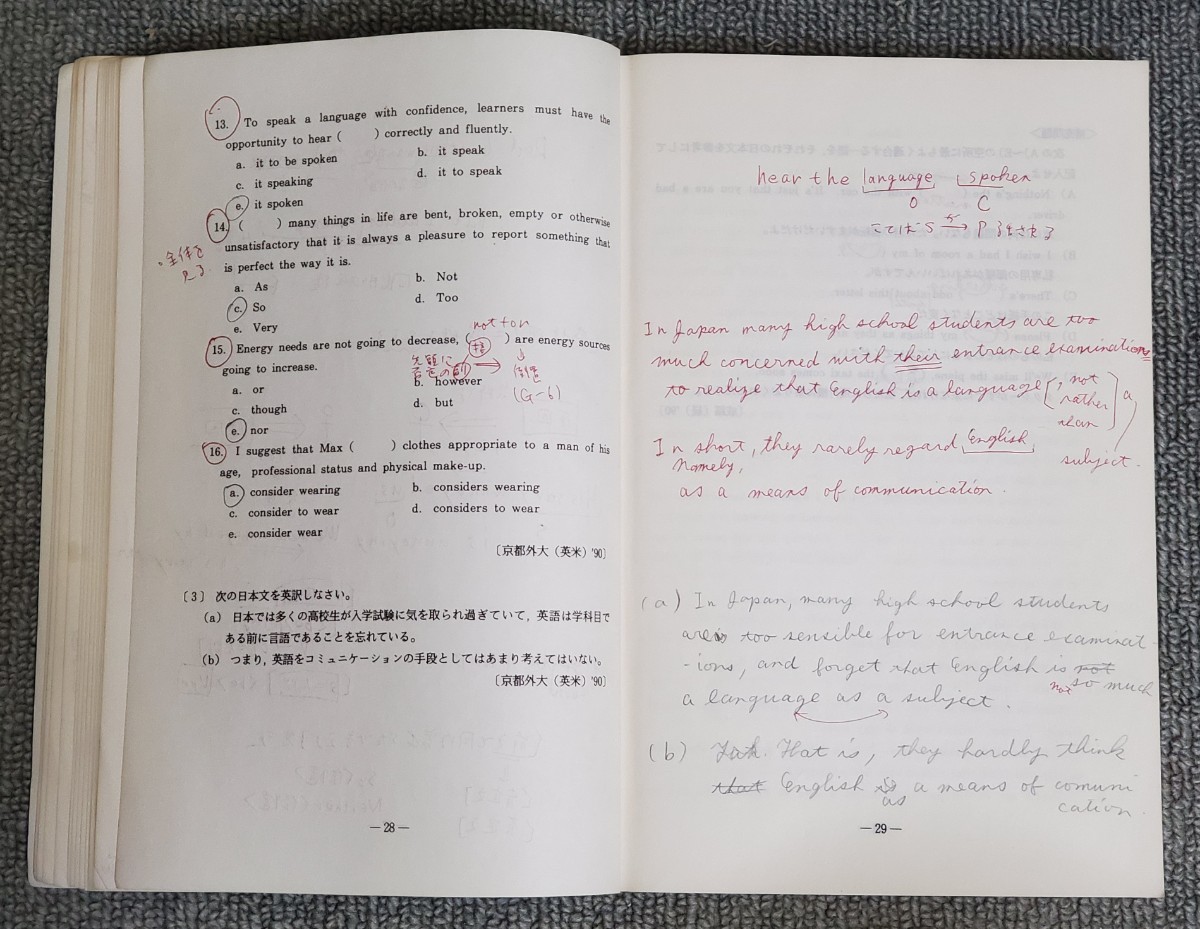 13. To speak a language with confidence, learners must have the
opportunity to hear ( ) correctly and fluently.
a. it to be spoken b. it speak
c. it speaking d. it to speak
e. it spoken
14. ( ) many things in life are bent, broken, empty or otherwise
unsatisfactory that it is always a pleasure to report something that
is perfect the way it is.
全体を
見る
a. As b. Not
c. So d. Too
e. Very
not + or
15. Energy needs are not going to decrease, ( ) are energy sources
going to increase.
文頭に
否定の副
語
倒置
(G-6)
a. or b. however
c. though d. but
e. nor
16. I suggest that Max ( ) clothes appropriate to a man of his
age, professional status and physical make-up.
a. consider wearing b. considers wearing
c. consider to wear d. considers to wear
e. consider wear
〔京都外大（英米）'90〕
〔3〕 次の日本文を英訳しなさい。
(a) 日本では多くの高校生が入学試験に気を取られ過ぎていて，英語は学科目で
ある前に言語であることを忘れている。
(b) つまり，英語をコミュニケーションの手段としてはあまり考えてはいない。
〔京都外大（英米）'90〕
―28―
hear the language spoken
O C
S P
In Japan many high school students are too
much concerned with their entrance examinations
to realize that English is a language , not a
rather
than
subject.
In short, they rarely regard English
Namely,
as a means of communication.
(a) In Japan, many high school students
are too sensible for entrance examinat
-ions, and forget that English is not
not so much
a language as a subject.
(b) That is, they hardly think
that English is a means of comuni
as
cation.
―29―